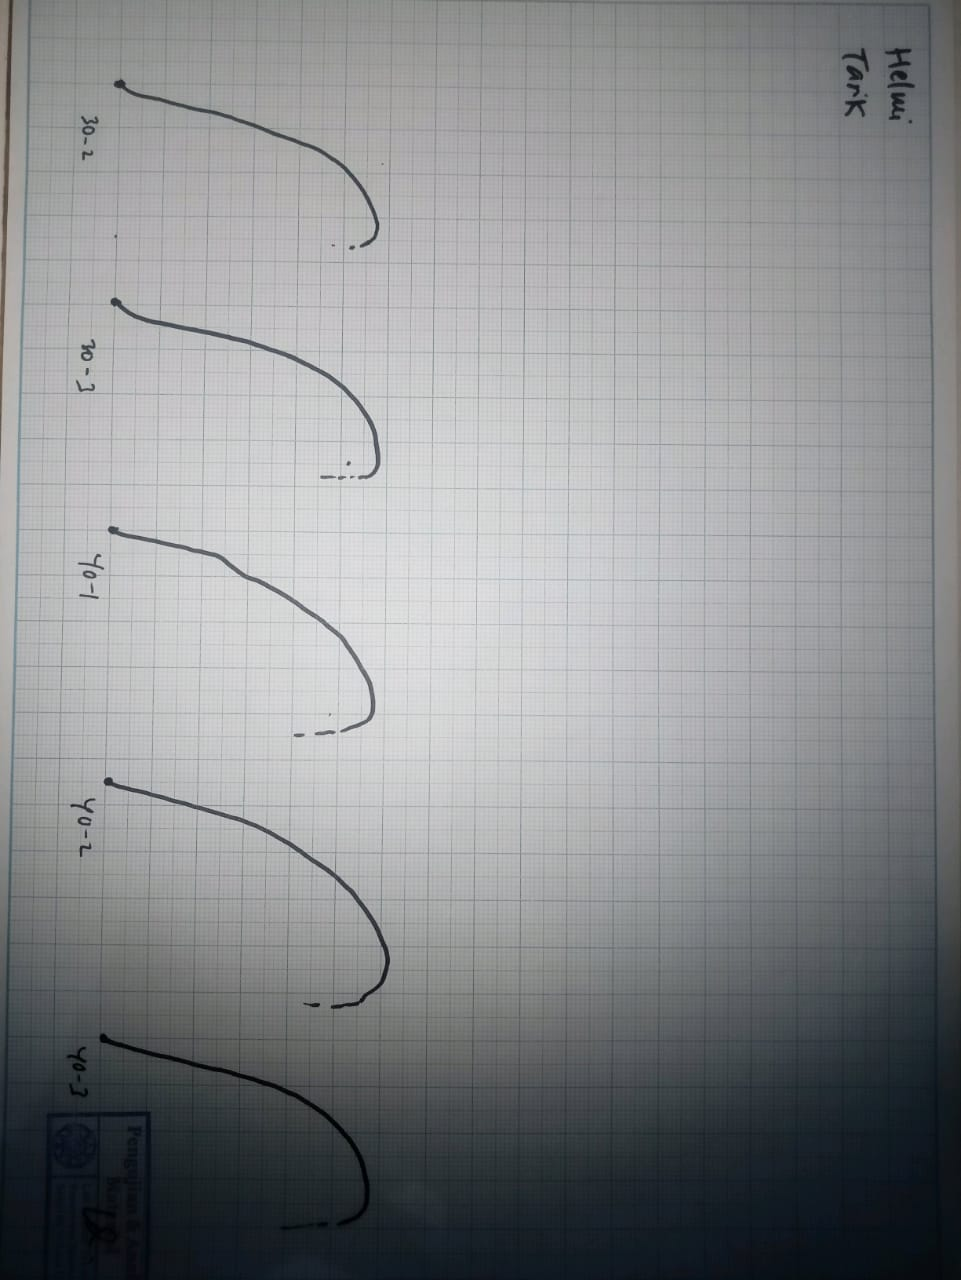 Helmi
Tarik
30-2
30-3
40-1
40-2
40-3
Pengujian &